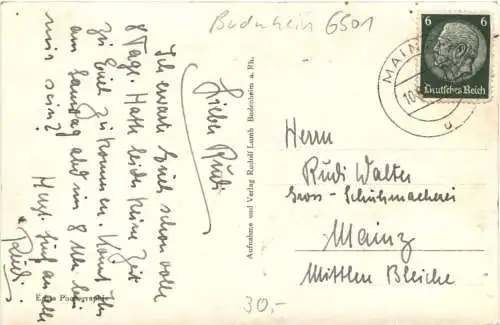 Budenheim 6501
Lieber Rudi
Ich erwarte Euch schon volle
8 Tage. Hatte leider keine Zeit
zu Euch zu kommen. Könnt Ihr
am Samstag abd um 8 Uhr bei
mir sein?
Rudi.
Echte Photographie
Aufnahme und Verlag Rudolf Lumb Budenheim a. Rh.
6 6
Deutsches Reich
MAINZ
Herrn
Rudi Walter
Gross-Schuhmacherei
Mainz
Mittlere Bleiche
30,-